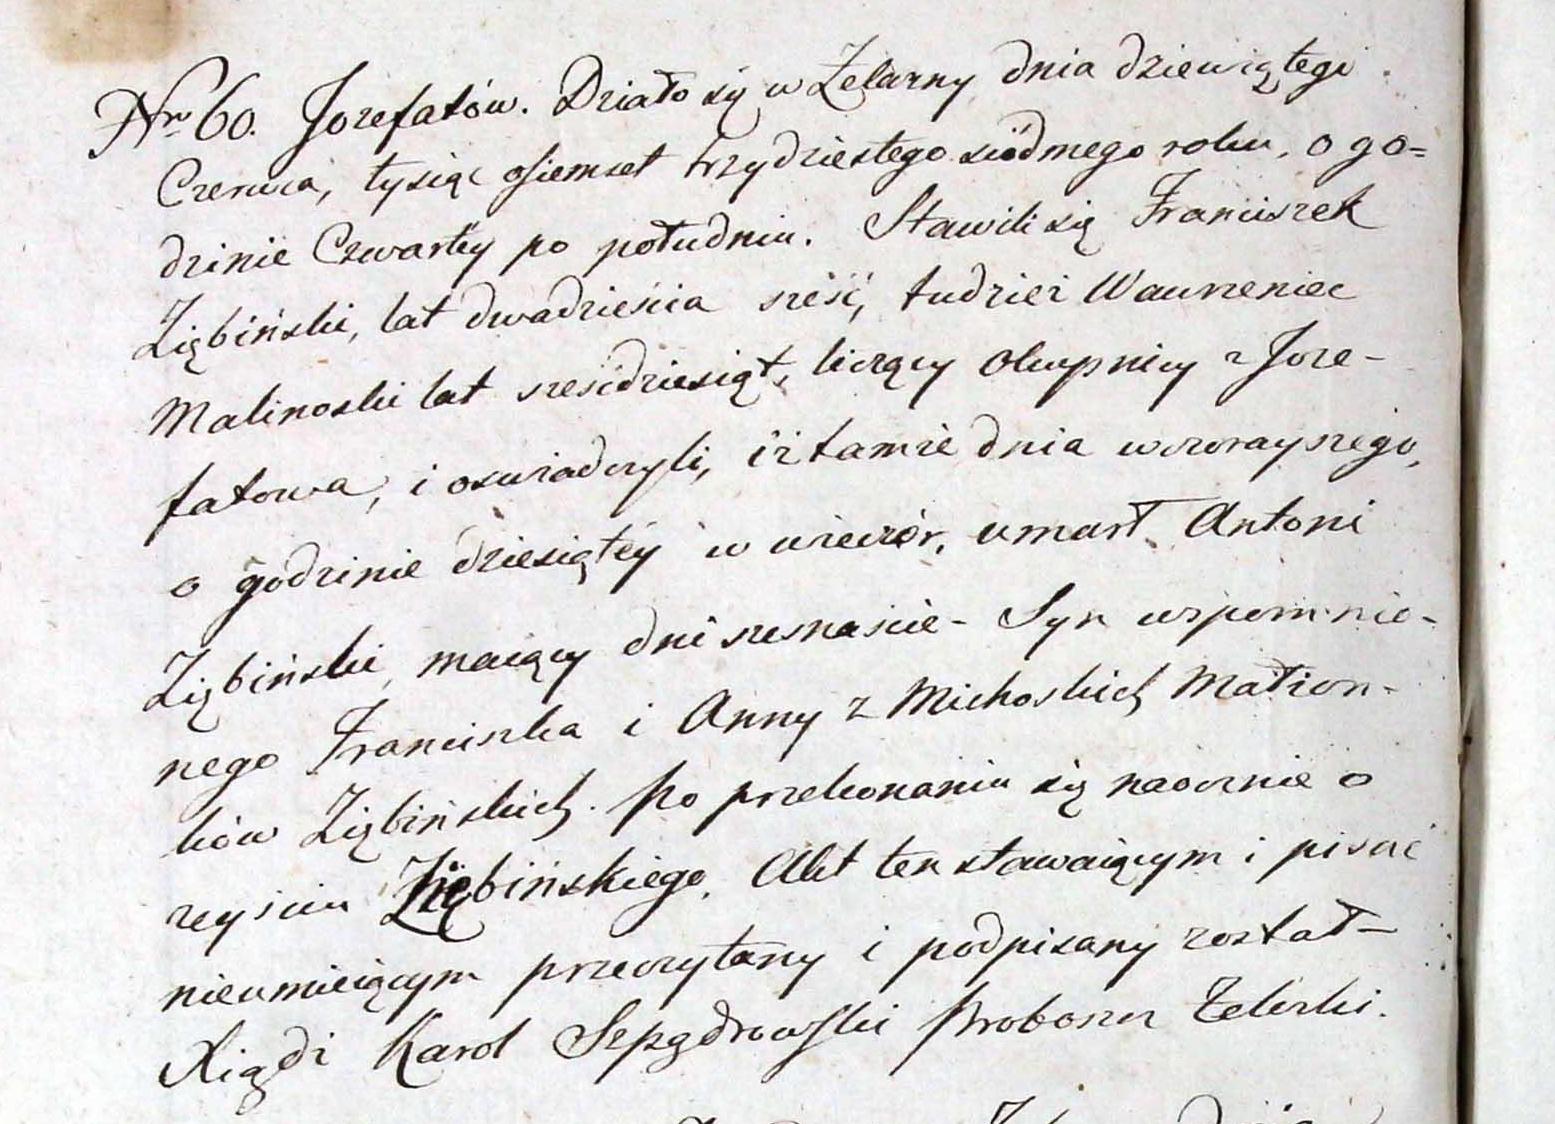 Nro 60. Jozefatów. Działo się w Zelazny dnia dziewiątego
Czerwca, tysiąc ośiemset trzydziestego siódmego roku, o go=
dzinie Czwartéy po południu. Stawili się Franciszek
Ziębiński, lat dwadzieścia sześć, tudzież Wawrzeniec
Malinoski lat sześćdziesiąt, liczący Okupnicy z Joze-
fatowa, i oświadczyli, iż tamże dnia wczorayszego,
o godzinie dziesiątéy w wieczór, umarł Antoni
Ziębiński, maiący dni szesnaście - Syn wspomnio-
nego Franciszka i Anny z Michoskich Małżon-
ków Ziębińskich. Po przekonaniu się naocznie o
zeyściu Ziębińskiego. Akt ten stawaiącym i pisać
nieumieiącym przeczytany i podpisany został -
Xiądz Karol Szpądrowski Proboszcz